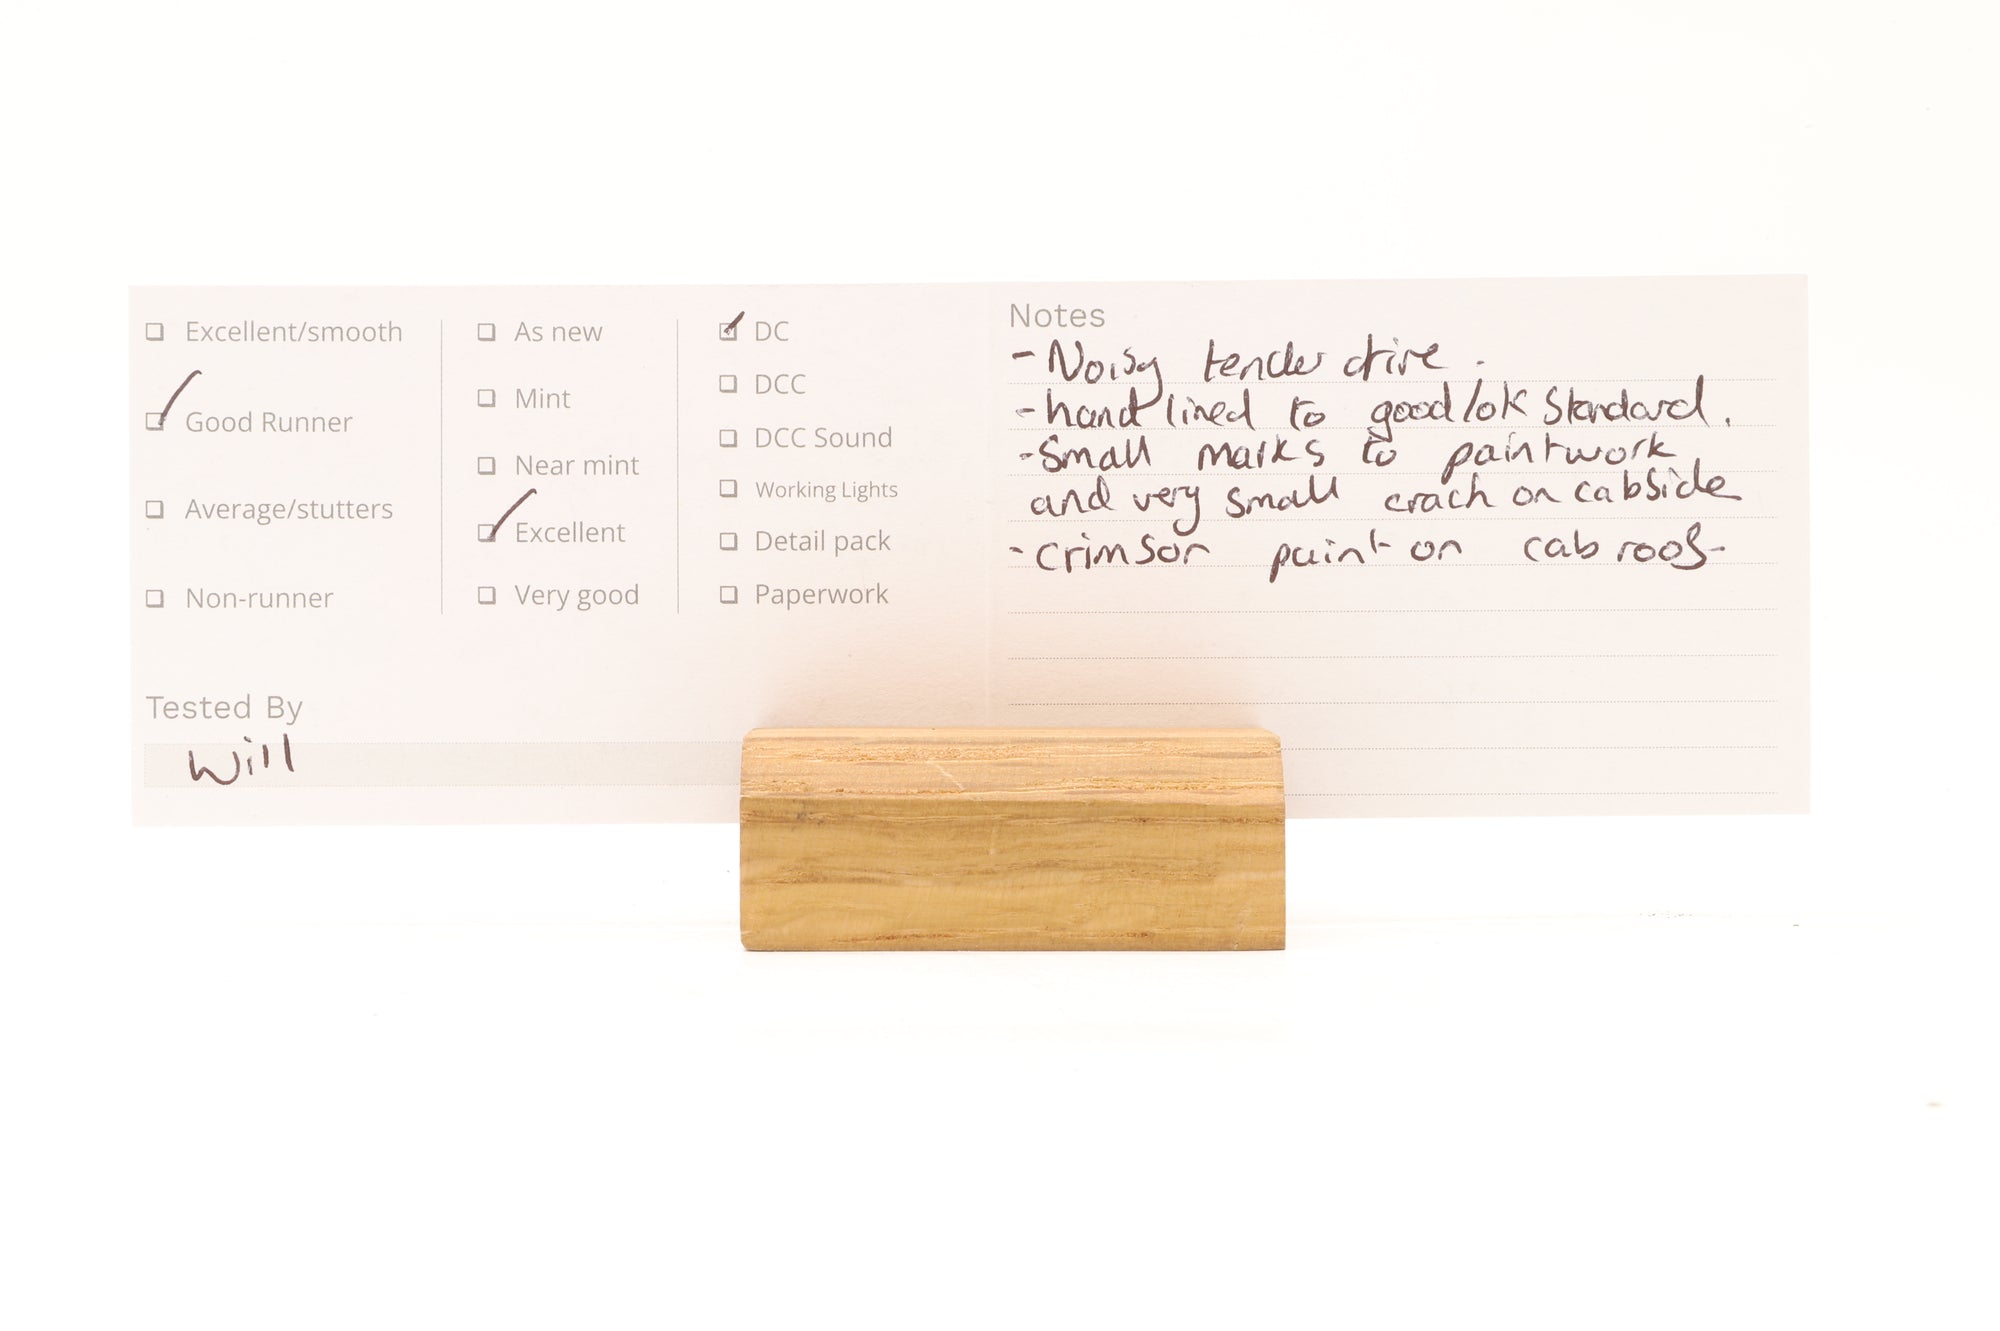 Excellent/smooth
Good Runner
Average/stutters
Non-runner
As new
Mint
Near mint
Excellent
Very good
DC
DCC
DCC Sound
Working Lights
Detail pack
Paperwork
Tested By
Will
Notes
- Noisy tender drive.
- hand lined to good/ok standard.
- Small marks to paintwork
and very small crack on cabside
- crimson paint on cab roof-